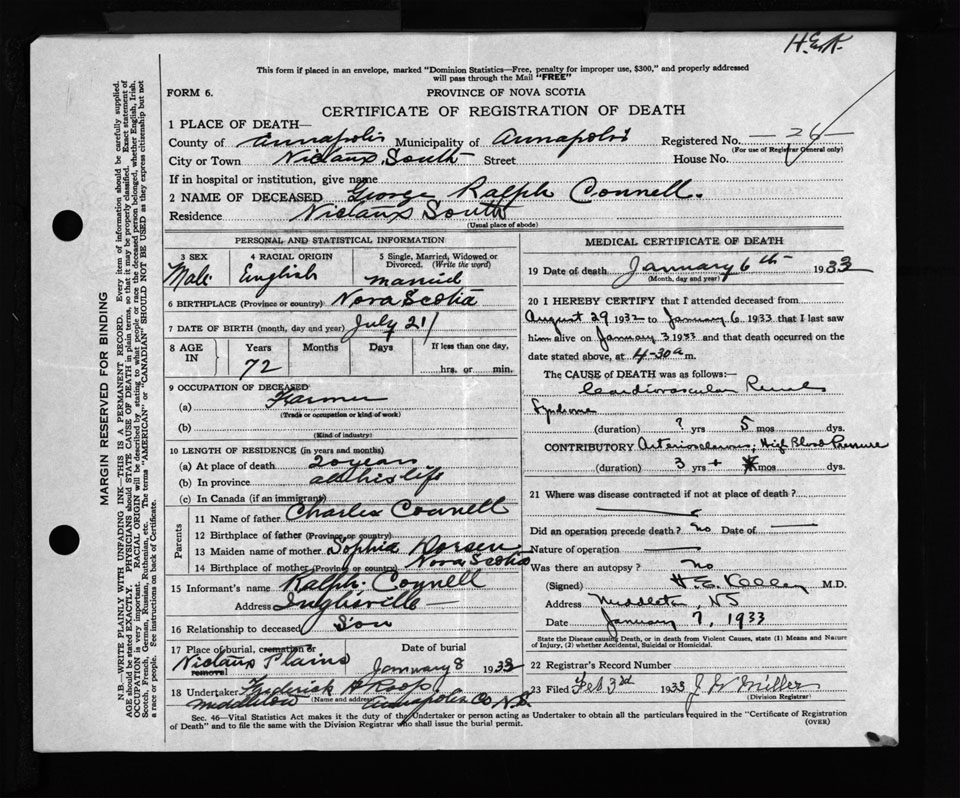 H.E.K.
This form if placed in an envelope, marked "Dominion Statistics—Free, penalty for improper use, $300," and properly addressed
will pass through the Mail "FREE"
FORM 6. PROVINCE OF NOVA SCOTIA
CERTIFICATE OF REGISTRATION OF DEATH
1 PLACE OF DEATH—
County of Annapolis Municipality of Annapolis Registered No. —26—
(For use of Registrar General only)
City or Town Nictaux South Street House No.
If in hospital or institution, give name
2 NAME OF DECEASED George Ralph Connell.
Residence Nictaux South
(Usual place of abode)
PERSONAL AND STATISTICAL INFORMATION
3 SEX 4 RACIAL ORIGIN 5 Single, Married, Widowed or
Divorced. (Write the word)
Male English married
6 BIRTHPLACE (Province or country) Nova Scotia
7 DATE OF BIRTH (month, day and year) July 21
8 AGE IN Years Months Days If less than one day,
72 hrs. or min.
9 OCCUPATION OF DECEASED
(a) Farmer
(Trade or occupation or kind of work)
(b)
(Kind of industry)
10 LENGTH OF RESIDENCE (in years and months)
(a) At place of death 20 years
(b) In province all his life
(c) In Canada (if an immigrant)
Parents
11 Name of father Charles Connell
12 Birthplace of father (Province or country)
13 Maiden name of mother Sophia
14 Birthplace of mother (Province or country) Nova Scotia
15 Informant's name Ralph Connell
Address Inglisville
16 Relationship to deceased Son
17 Place of burial, cremation or removal Date of burial
Nictaux Plains January 8 1933
18 Undertaker Frederick
(Name and address)
Middleton Annapolis Co N.S.
MEDICAL CERTIFICATE OF DEATH
19 Date of death January 6th 1933
(Month, day and year)
20 I HEREBY CERTIFY that I attended deceased from
August 29 1932 to January 6 1933 that I last saw
him alive on January 3 1933 and that death occurred on the
date stated above, at 4-30 a m.
The CAUSE of DEATH was as follows:—
Cardiovascular Renal
Syndrome
(duration) ? yrs 5 mos dys.
CONTRIBUTORY Arteriosclerosis, High Blood Pressure
(duration) 3 yrs + mos dys.
21 Where was disease contracted if not at place of death?
Did an operation precede death? No Date of
Nature of operation
Was there an autopsy? No
(Signed) H.E. Kelley M.D.
Address Middleton, NS
Date January 7, 1933
State the Disease causing Death, or in death from Violent Causes, state (1) Means and Nature
of Injury, (2) whether Accidental, Suicidal or Homicidal.
22 Registrar's Record Number
23 Filed Feb 3rd 1933 J W Miller
(Division Registrar)
Sec. 46—Vital Statistics Act makes it the duty of the Undertaker or person acting as Undertaker to obtain all the particulars required in the "Certificate of Registration
of Death" and to file the same with the Division Registrar who shall issue the burial permit. (OVER)
MARGIN RESERVED FOR BINDING
N.B.—WRITE PLAINLY WITH UNFADING INK—THIS IS A PERMANENT RECORD. Every item of information should be carefully supplied.
AGE should be stated EXACTLY. PHYSICIANS should STATE CAUSE OF DEATH in plain terms, so that it may be properly classified. Exact statement of
OCCUPATION is very important. RACIAL ORIGIN will be described by stating to what people or race the deceased person belonged, whether English, Irish,
Scotch, French, German, Russian, Ruthenian, etc. The terms "AMERICAN" or "CANADIAN" SHOULD NOT BE USED as they express citizenship but not
a race or people. See instructions on back of Certificate.